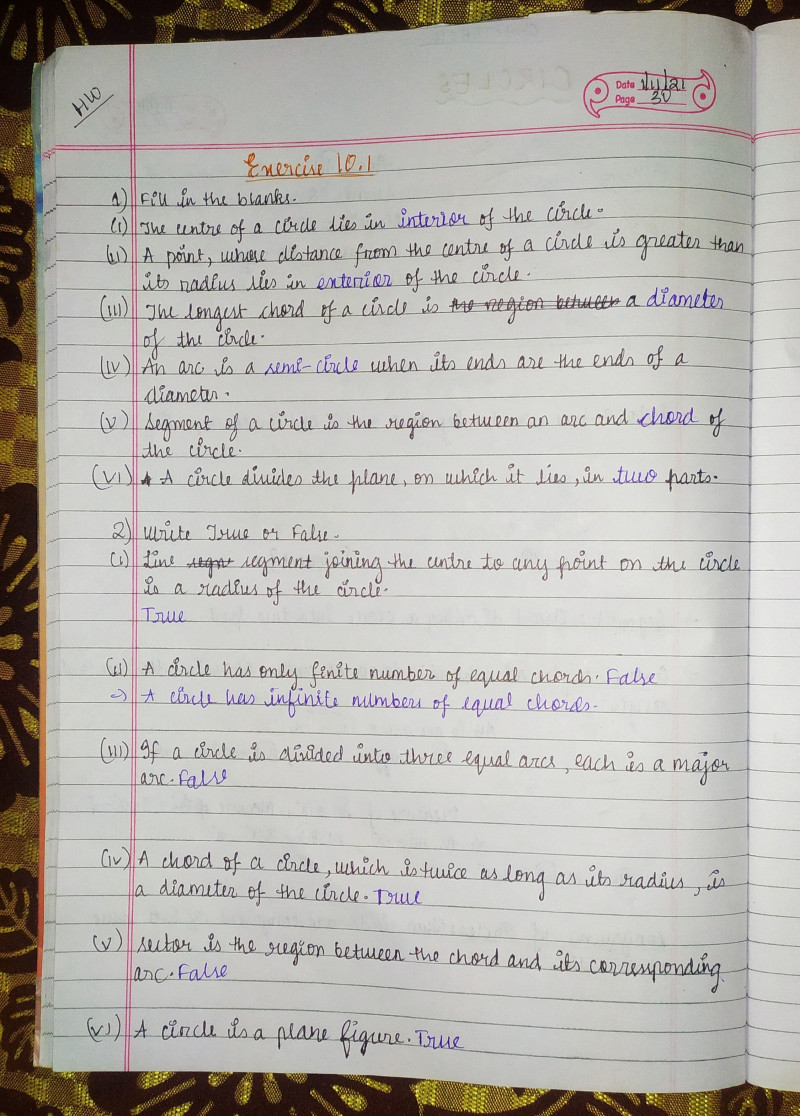 HW
Date 1/11/21
Page 30
Exercise 10.1
1) Fill in the blanks.
(i) The centre of a circle lies in interior of the circle.
(ii) A point, whose distance from the centre of a circle is greater than
its radius lies in exterior of the circle.
(iii) The longest chord of a circle is the region between a diameter
of the circle.
(iv) An arc is a semi-circle when its ends are the ends of a
diameter.
(v) Segment of a circle is the region between an arc and chord of
the circle.
(vi) A circle divides the plane, on which it lies, in two parts.
2) Write True or False.
(i) Line segment joining the centre to any point on the circle
is a radius of the circle.
True
(ii) A circle has only finite number of equal chords. False
→ A circle has infinite numbers of equal chords.
(iii) If a circle is divided into three equal arcs, each is a major
arc. False
(iv) A chord of a circle, which is twice as long as its radius, is
a diameter of the circle. True
(v) Sector is the region between the chord and its corresponding
arc. False
(vi) A circle is a plane figure. True
CIRCLES